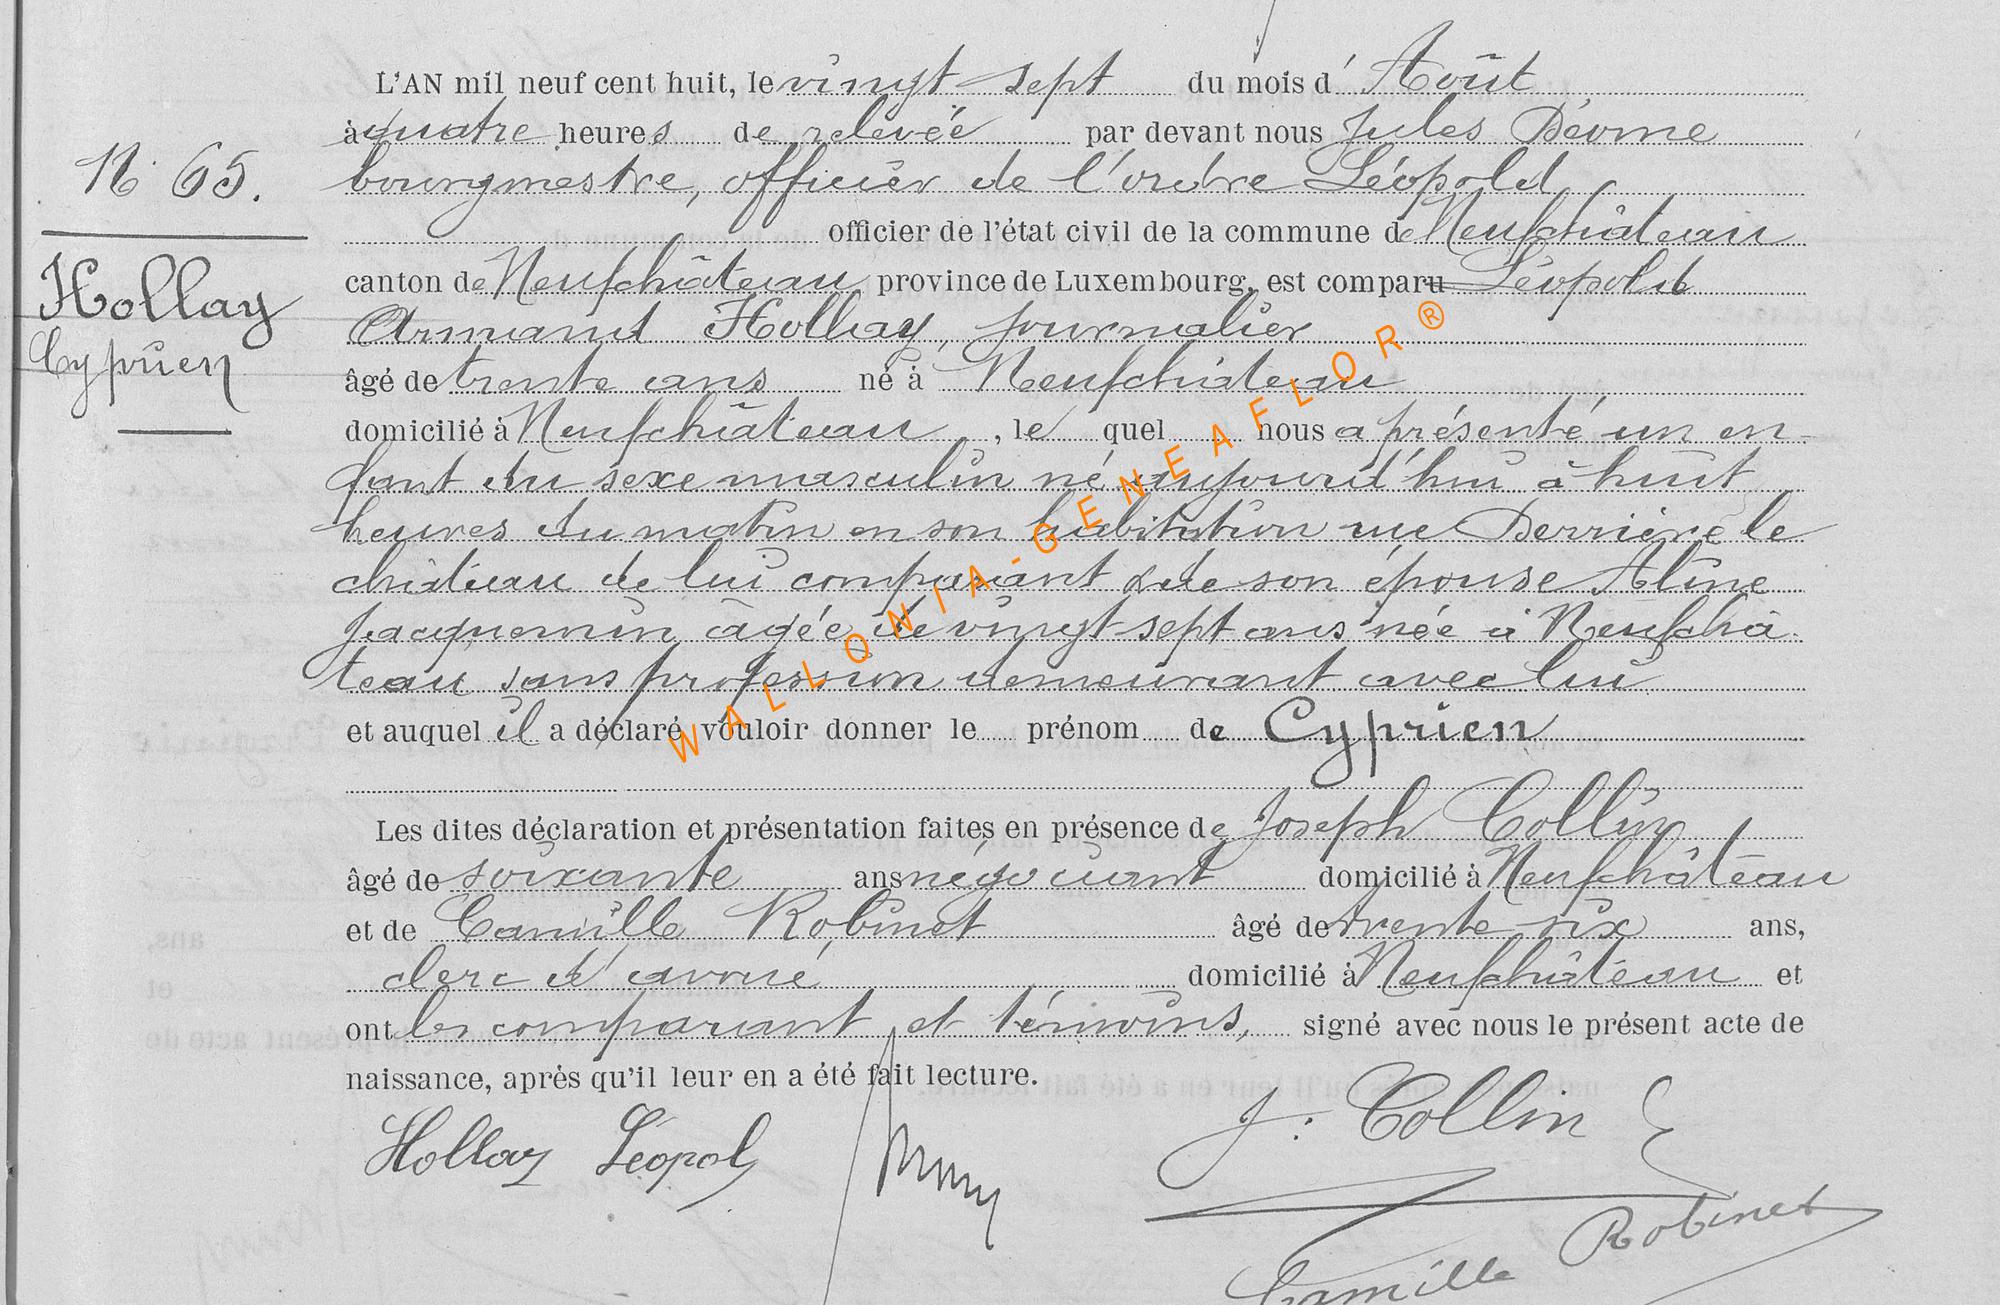 L'AN mil neuf cent huit, le vingt-sept du mois d' Août
à quatre heures de relevée par devant nous Jules
bourgmestre, officier de l'ordre Léopold,
officier de l'état civil de la commune de Neufchâteau
N° 65.
canton de Neufchâteau, province de Luxembourg, est comparu Léopold
Hollay
Armand Hollay, journalier
Cyprien
âgé de trente ans né à Neufchâteau
domicilié à Neufchâteau, le quel nous a présenté un en-
fant du sexe masculin né aujourd'hui à huit
heures du matin en son habitation rue Derrière le
château de lui comparant & de son épouse Aline
Jacquemin âgée de vingt-sept ans née à Neufchâ-
teau sans profession demeurant avec lui
et auquel il a déclaré vouloir donner le prénom de Cyprien
Les dites déclaration et présentation faites en présence de Joseph Collin
âgé de soixante ans négociant domicilié à Neufchâteau
et de Camille Robinet âgé de trente six ans,
clerc d'avoué domicilié à Neufchâteau et
ont les comparant et témoins, signé avec nous le présent acte de
naissance, après qu'il leur en a été fait lecture.
Hollay Léopold J. Collin
Camille Robinet
WALLONIA-GENEAFLOR®